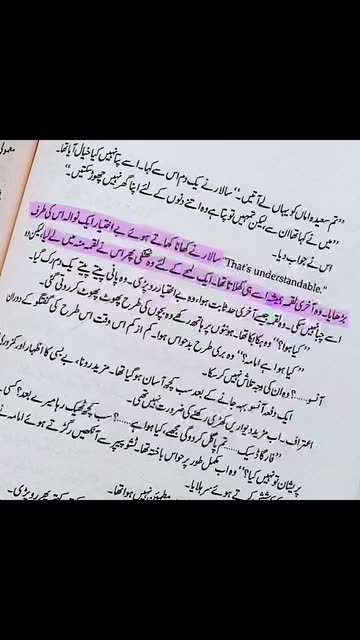 معمولی
”تم سعیدہ اماں کو یہاں لے آتیں۔“ سالار نے یک دم اس سے کہا۔ اسے پتا نہیں کیا خیال آیا تھا۔
”میں نے کہا تھا ان سے لیکن تمہیں تو پتا ہے وہ اتنے دنوں کے لئے اپنا گھر نہیں چھوڑ سکتیں۔“
اس نے جواب دیا۔
"That's understandable." سالار نے کھانا کھاتے ہوئے بے اختیار ایک نوالہ اس کی طرف
بڑھایا۔ وہ آخری لقمہ ہمیشہ اسے ہی کھلاتا تھا۔ ایک لمحے کے لئے وہ ٹھٹکی پھر اس نے لقمہ منہ میں لے لیا لیکن وہ
اسے چبا نہیں سکی۔ وہ لقمہ جیسے آخری حد ثابت ہوا، وہ بے اختیار رو پڑی۔ وہ پانی پیتے پیتے یک دم رک گیا۔
”کیا ہوا؟“ وہ ہکا بکا تھا۔ ہونٹوں پر ہاتھ رکھے وہ بچوں کی طرح پھوٹ پھوٹ کر روتی گئی۔
”کیا ہوا ہے امامہ؟“ وہ بری طرح بدحواس ہوا۔ کم از کم اس وقت اس طرح کی گفتگو کے دوران
آنسو.....؟ وہ ان کی وجہ تلاش نہیں کر سکا۔
ایک دفعہ آنسو بہہ جانے کے بعد سب کچھ آسان ہو گیا تھا۔ مزید رونا، بے بسی کا اظہار اور کمزوری
اعتراف۔ اب مزید دیواریں کھڑی رکھنے کی ضرورت نہیں تھی۔
”فار گاڈ سیک..... تم پاگل کر دو گی مجھے، کیا ہوا ہے.....؟ سب کچھ ٹھیک رہا میرے بعد؟ کسی
پریشان تو نہیں کیا؟“ وہ اب مکمل طور پر حواس باختہ تھا۔ ٹشو پیپر سے آنکھیں رگڑتے ہوئے امامہ
کرتے ہوئے سر ہلایا۔
مطمئن نہیں ہوا تھا۔
پھر رو پڑی۔